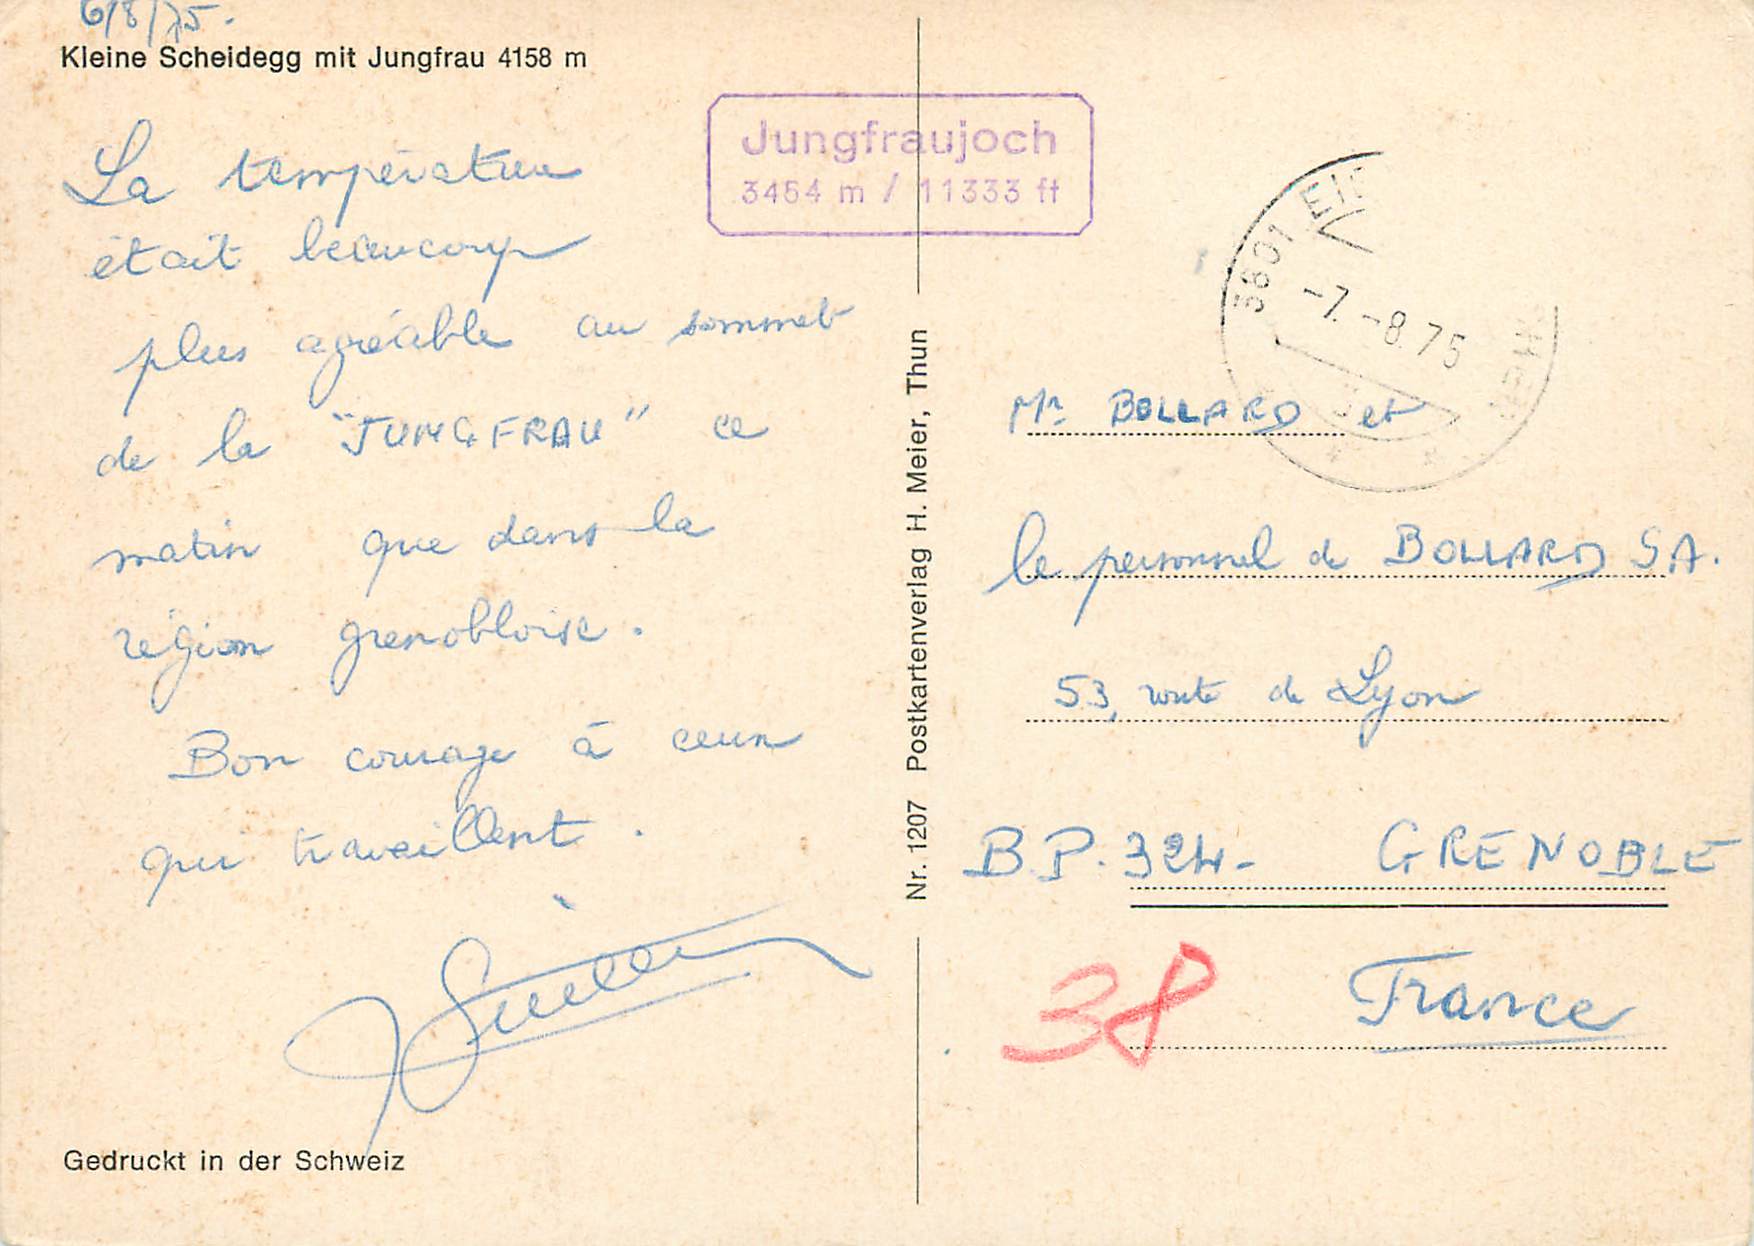 6/8/75.
Kleine Scheidegg mit Jungfrau 4158 m
La température
était beaucoup
plus agréable au sommet
de la "JUNGFRAU" ce
matin que dans la
région grenobloise.
Bon courage à ceux
qui travaillent.
Gedruckt in der Schweiz
Jungfraujoch
3454 m / 11333 ft
Nr. 1207 Postkartenverlag H. Meier, Thun
3801
-7.-8.75
Mr BOLLARD et
le personnel de BOLLARD SA.
53, route de Lyon
B.P. 324- GRENOBLE
38 France